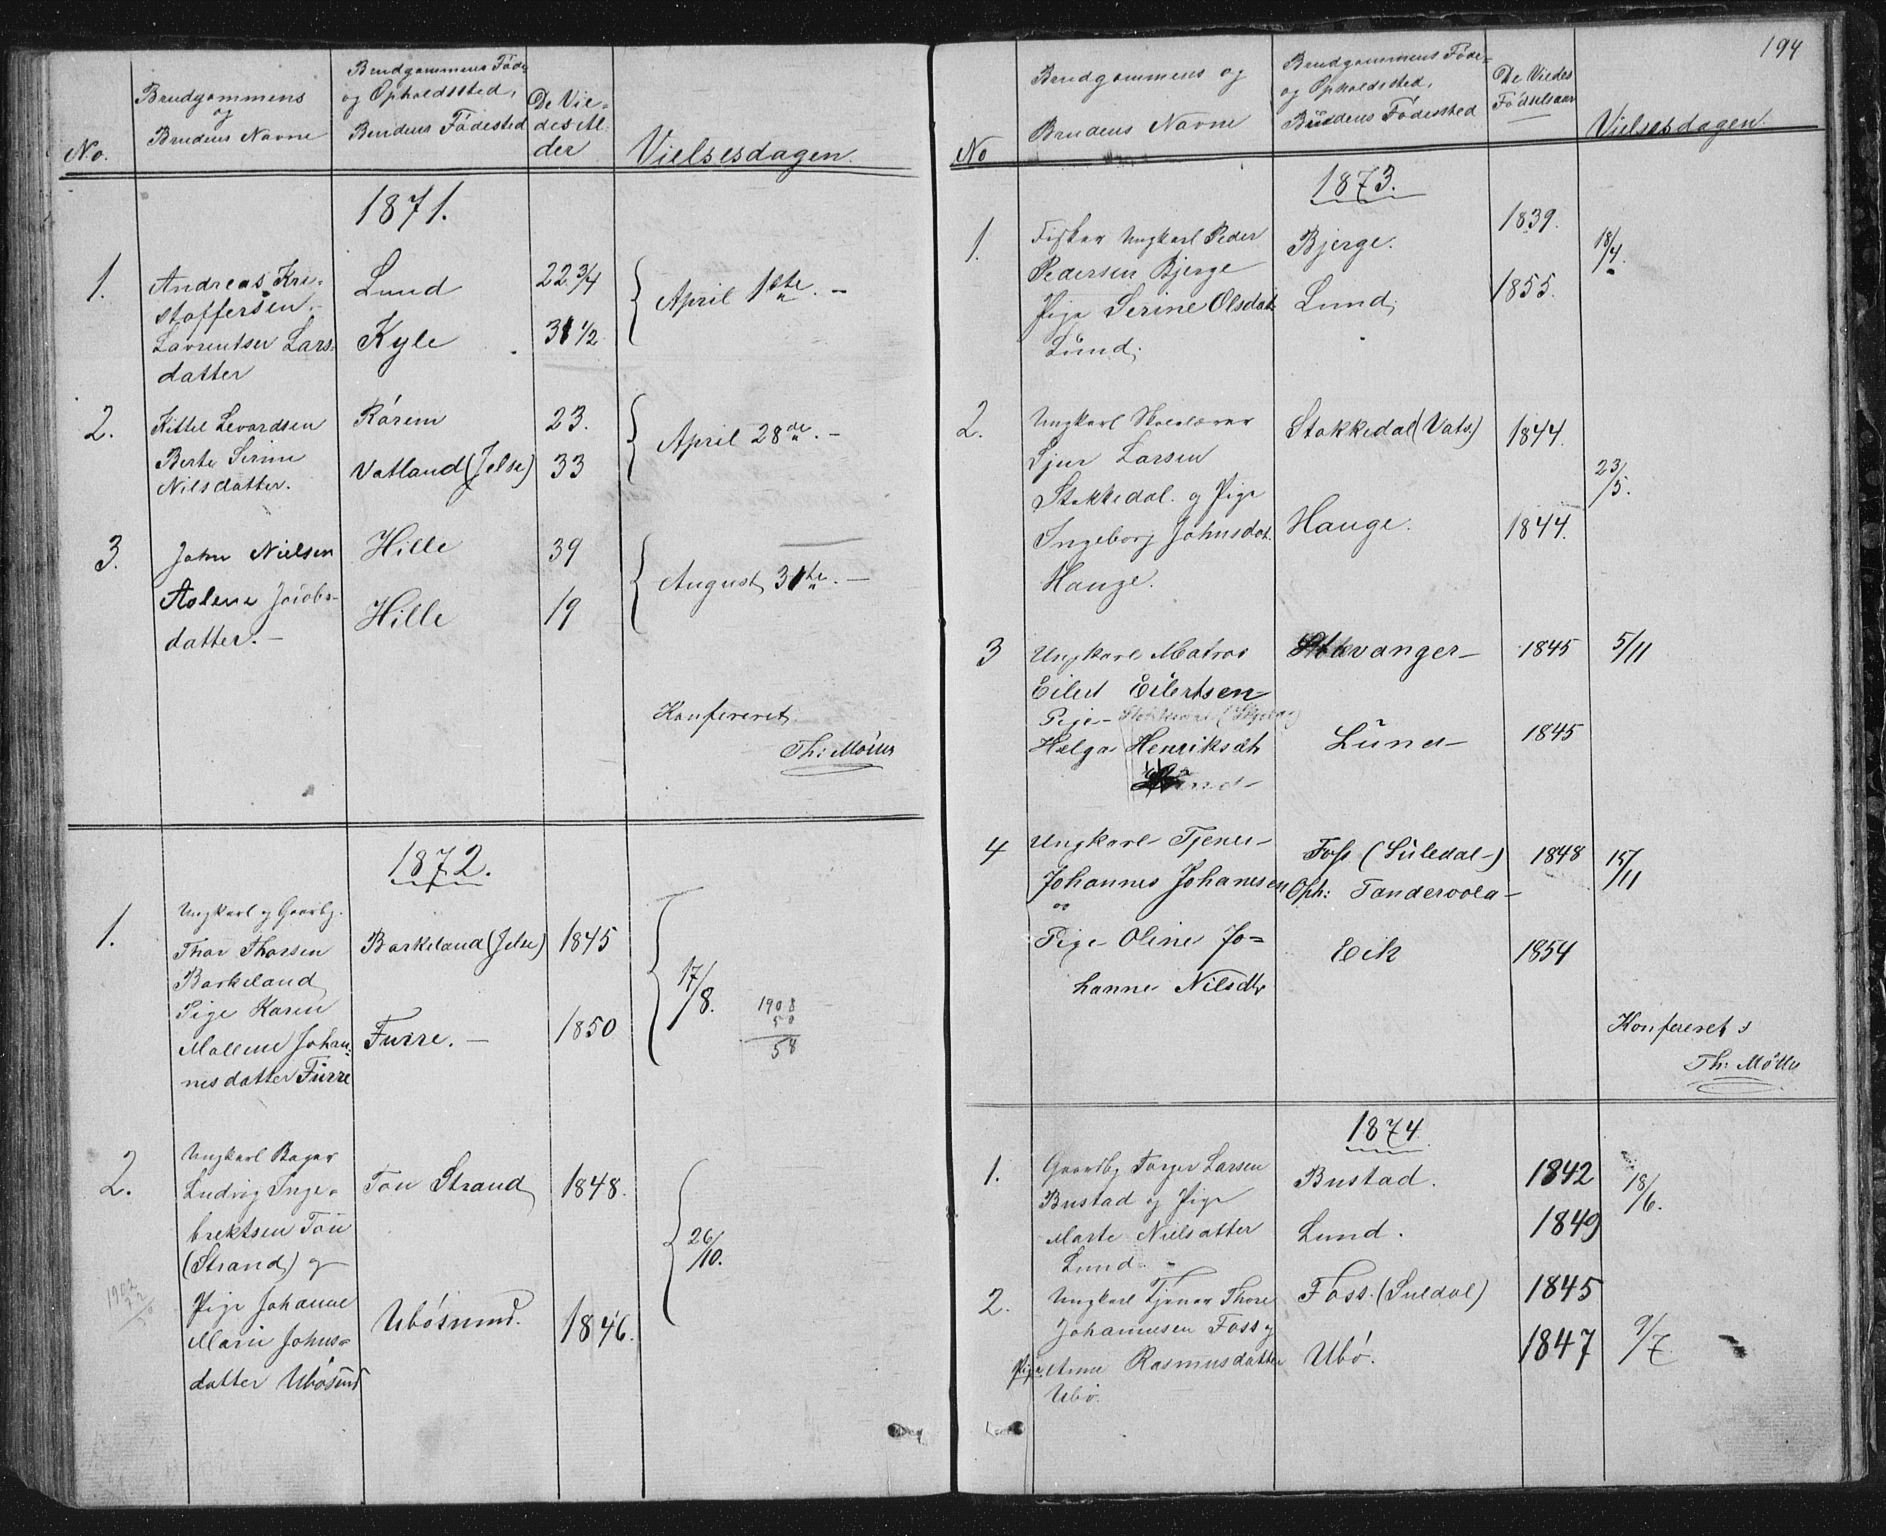 No.
Brudgommens
og
Brudens Navne
Brudgommens Føde
og Opholdssted,
Brudens Fødested
De Vie-
des Al-
der
Vielsesdagen.
1871.
1.
Andreas Kri-
stoffersen.
Lund
22 3/4
April 1ste. -
Lavrentse Lars-
datter
Kyle
31 1/2
2.
Kittel Levardsen
Rárem
23.
April 28de. -
Berte Serine
Nilsdatter.
Vatland (Jelse)
33
3.
John Nielsen
Hille
39
August 31te. -
Aslene Jacobs-
datter. -
Hille
19
Konfereret
Th: Møller
1872.
1.
Ungkarl og Gaardbr.
Thor Thorsen
Barkeland
Barkeland (Jelse)
1845
17/8.
Pige Karen
Mallene Johan-
nesdatter Furre
Furre. -
1850
1908
50
58
2.
Ungkarl Bager
Ludvig Inge-
brektsen Tou
(Strand) og
Tou Strand
1848.
26/10.
Pige Johanne
Marie Johns-
datter Ubøsund
Ubøsund.
1846.
1902
194
No
Brudgommens og
Brudens Navne
Brudgommens Føde-
og Opholdssted,
Brudens Fødested
De Viedes
Fødselsaar
Vielsesdagen.
1873.
1.
Fisker Ungkarl Peder
Pedersen Bjerge
Bjerge.
1839.
18/4.
Pige Serine Olsdat.
Lund.
Lund,
1855.
2.
Ungkarl Skolelærer
Sjur Larsen
Stokkedal. og Pige
Stokkedal (Vats)
1844.
23/5.
Ingeborg Johnsdat.
Hauge.
Hauge.
1844.
3
Ungkarl Matros
Eilert Eilertsen
vanger-
1845
5/11
Pige-
Helga Henriksdt
Lund-
Lund-
1845
4
Ungkarl Tjener-
Johannes Johannesen
og
Foss (Suledal-)
Oph: Tandervola-
1848
15/11
Pige Oline Jo-
hanne Nilsdtr
Eik
1854
Konfereret
Th: Møller
1874.
1.
Gaardbr Torger Larsen
Bustad og Pige
Bustad.
1842
18/6.
Marte Nielsdatter
Lund.
Lund.
1849
2.
Ungkarl Tjener Thore
Johannesen Foss og
Foss. (Suldal)
1845
9/7.
Pige Anna Rasmusdatter
Ubø.
Ubø.
1847